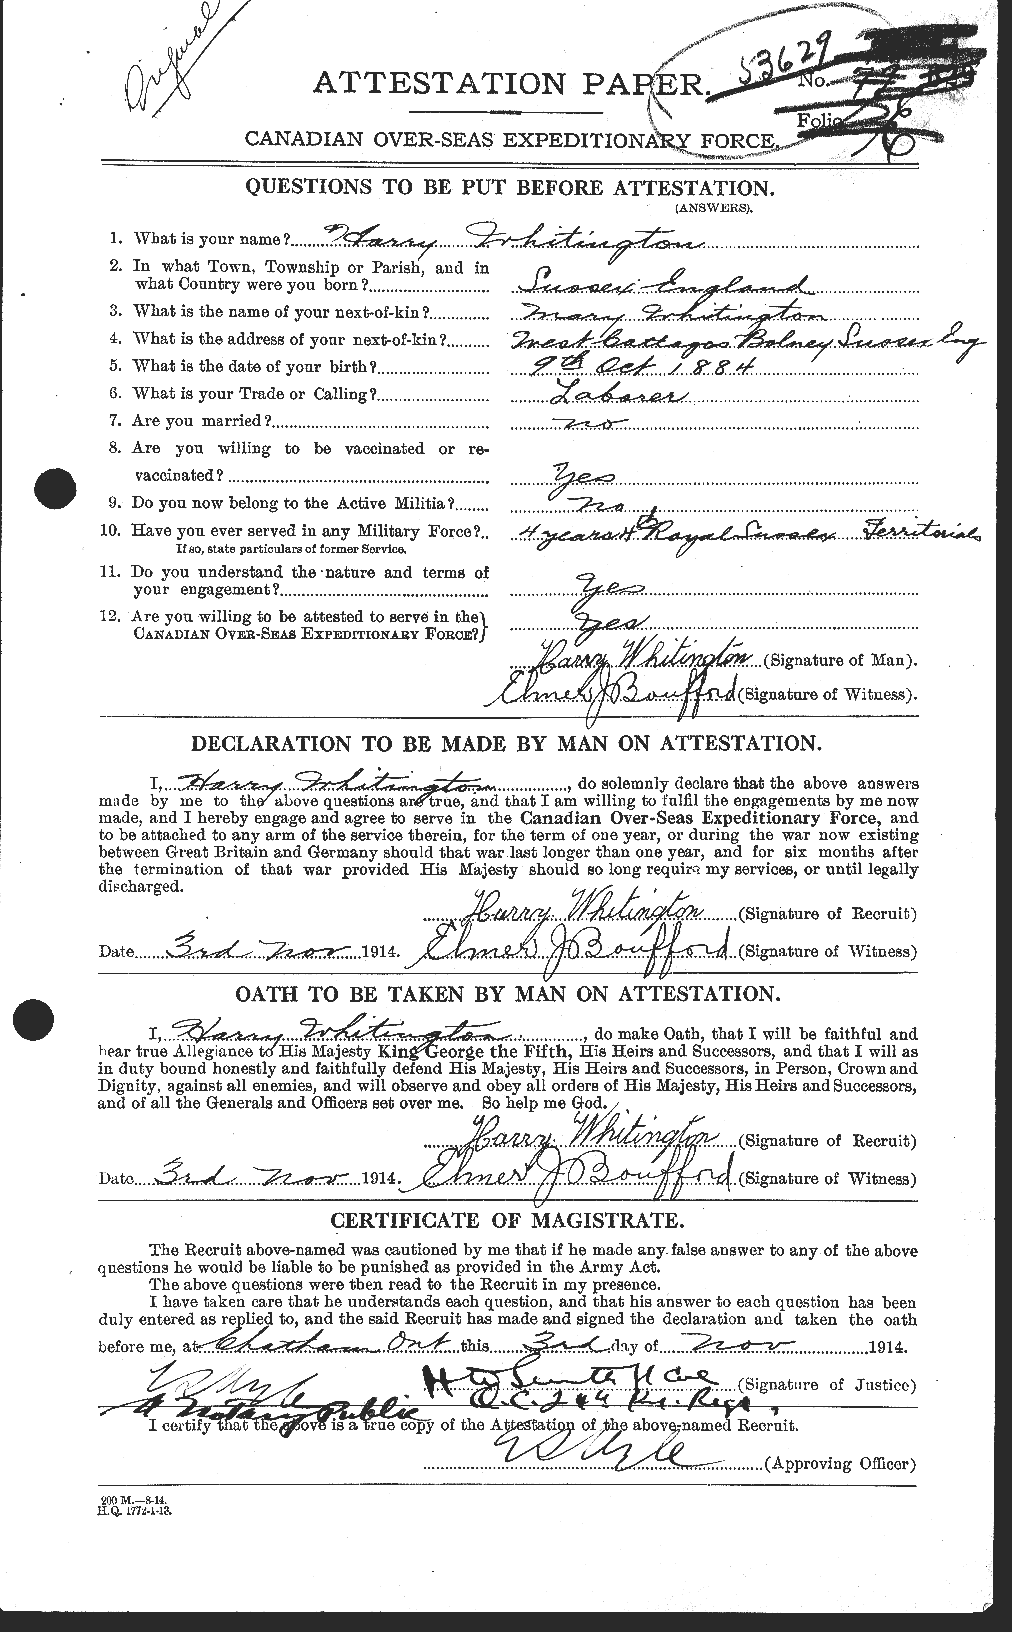 Original
53629
ATTESTATION PAPER. No.
Folio
CANADIAN OVER-SEAS EXPEDITIONARY FORCE.
QUESTIONS TO BE PUT BEFORE ATTESTATION.
(ANSWERS).
1. What is your name? Harry Whitington
2. In what Town, Township or Parish, and in
what Country were you born? Sussex England
3. What is the name of your next-of-kin? Mary Whitington
4. What is the address of your next-of-kin? West Cottages Bolney Sussex Eng
5. What is the date of your birth? 9th Oct 1884
6. What is your Trade or Calling? Laborer
7. Are you married? no
8. Are you willing to be vaccinated or re-
vaccinated? Yes
9. Do you now belong to the Active Militia? No
10. Have you ever served in any Military Force? 4 years 4th Royal Sussex Territorials
If so, state particulars of former Service.
11. Do you understand the nature and terms of
your engagement? Yes
12. Are you willing to be attested to serve in the
CANADIAN OVER-SEAS EXPEDITIONARY FORCE? Yes
Harry Whitington (Signature of Man).
Elmer J Boufford (Signature of Witness).
DECLARATION TO BE MADE BY MAN ON ATTESTATION.
I, Harry Whitington, do solemnly declare that the above answers
made by me to the above questions are true, and that I am willing to fulfil the engagements by me now
made, and I hereby engage and agree to serve in the Canadian Over-Seas Expeditionary Force, and
to be attached to any arm of the service therein, for the term of one year, or during the war now existing
between Great Britain and Germany should that war last longer than one year, and for six months after
the termination of that war provided His Majesty should so long require my services, or until legally
discharged.
Harry Whitington (Signature of Recruit)
Date 3rd Nov 1914. Elmer J Boufford (Signature of Witness)
OATH TO BE TAKEN BY MAN ON ATTESTATION.
I, Harry Whitington, do make Oath, that I will be faithful and
bear true Allegiance to His Majesty King George the Fifth, His Heirs and Successors, and that I will as
in duty bound honestly and faithfully defend His Majesty, His Heirs and Successors, in Person, Crown and
Dignity, against all enemies, and will observe and obey all orders of His Majesty, His Heirs and Successors,
and of all the Generals and Officers set over me. So help me God.
Harry Whitington (Signature of Recruit)
Date 3rd Nov 1914. Elmer J Boufford (Signature of Witness)
CERTIFICATE OF MAGISTRATE.
The Recruit above-named was cautioned by me that if he made any false answer to any of the above
questions he would be liable to be punished as provided in the Army Act.
The above questions were then read to the Recruit in my presence.
I have taken care that he understands each question, and that his answer to each question has been
duly entered as replied to, and the said Recruit has made and signed the declaration and taken the oath
before me, at Chatham Ont this 3rd day of Nov 1914.
(Signature of Justice)
A Notary Public O.C. 24th
I certify that the above is a true copy of the Attestation of the above-named Recruit.
(Approving Officer)
200 M.—8-14.
H.Q. 1772-1-13.